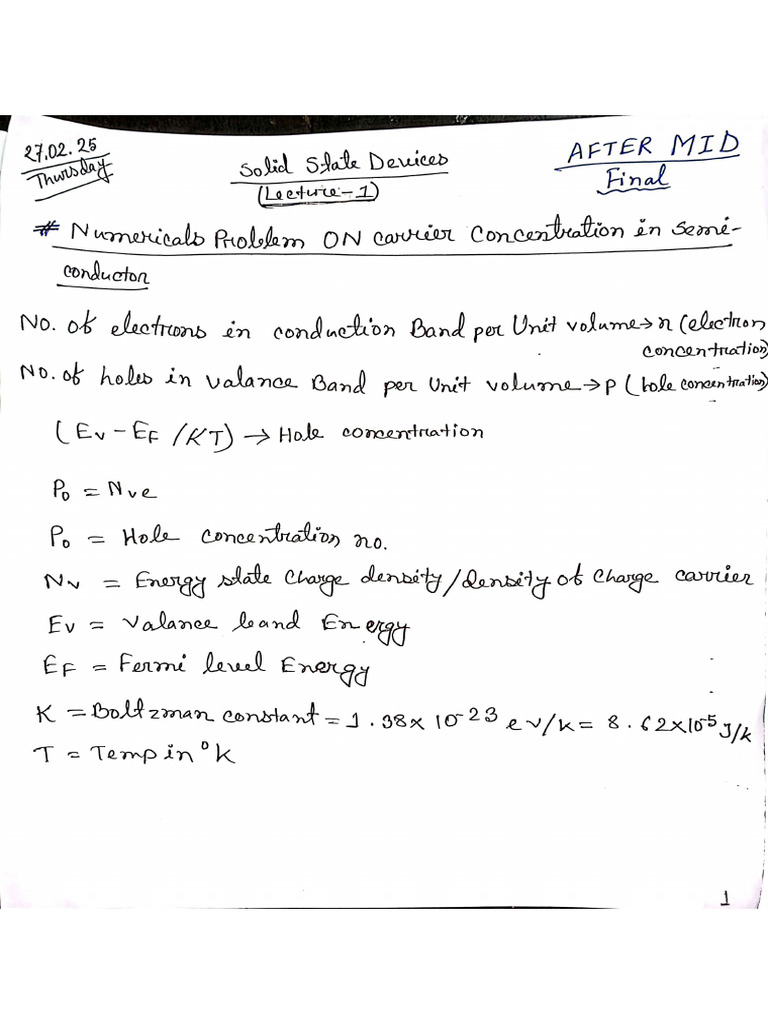 27.02.25
Thursday
Solid State Devices
(Lecture-1)
AFTER MID
Final
# Numericals Problem ON Carrier Concentration in Semi-
conductor
No. of electrons in conduction Band per Unit volume → n (electron
concentration)
No. of holes in valance Band per Unit volume → p (hole concentration)
(Ev - EF /KT) → Hole concentration
P₀ = Nve
P₀ = Hole concentration no.
Nv = Energy state charge density/density of charge carrier
Ev = Valance band Energy
EF = Fermi level Energy
K = Boltzman constant = 1.38×10-23 ev/k = 8.62×10⁻⁵ J/k
T = Temp in °K
1